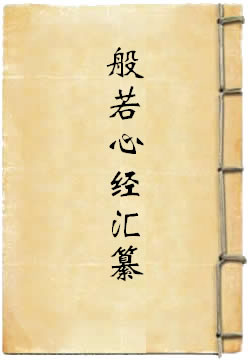 般若心经汇纂